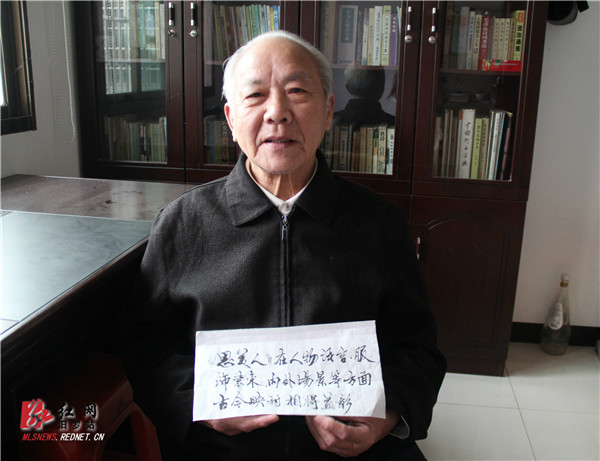 《思美人》在人物语言、服
饰装束、内外场景等方面
古今映衬相得益彰
红网
汨罗站
MLSNEWS.REDNET.CN